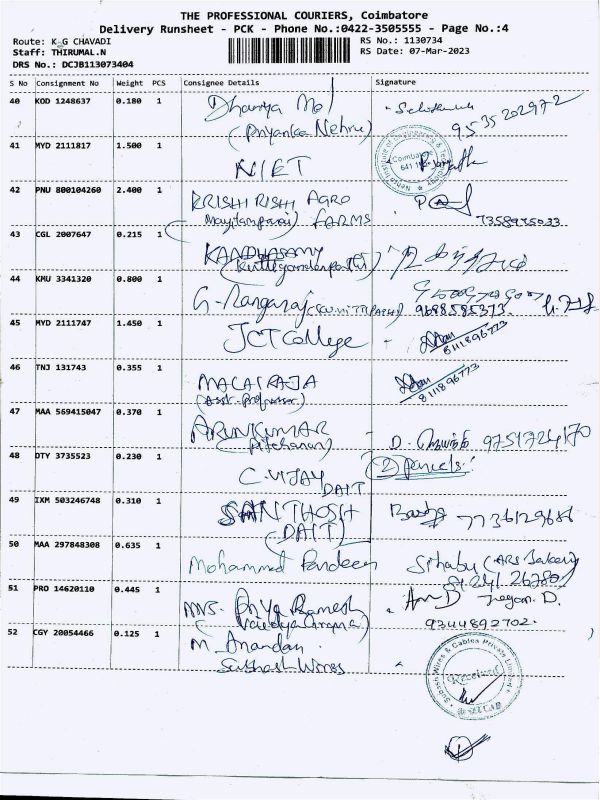 THE PROFESSIONAL COURIERS, Coimbatore
Delivery Runsheet - PCK - Phone No.:0422-3505555 - Page No.:4
Route: K G CHAVADI
RS No.: 1130734
Staff: THIRUMAL.N
RS Date: 07-Mar-2023
DRS No.: DCJB113073404
S No Consignment No Weight PCS Consignee Details Signature
40 KOD 1248637 0.180 1 Dhanya Mol
(Priyanka Nehru) 9535202972
41 MYD 2111817 1.500 1 NIET
Coimbatore
42 PNU 800104260 2.400 1 KRISHI RISHI AGRO
FARMS 7358945033
43 CGL 2007647 0.215 1 KANDHASAMY
44 KMU 3341320 0.800 1 G. Rangaraj 9688585373
45 MYD 2111747 1.450 1 JCT College 8111896773
46 TNJ 131743 0.355 1 MALAIRAJA 8111896773
(Asst. Professor)
47 MAA 569415047 0.370 1 ARUNKUMAR
(Pitchanur) D. 9751724170
48 DTY 3735523 0.230 1 C. VIJAY (2) parcels.
DAIT
49 IXM 503246748 0.310 1 SANTHOSH
(DAIT) 7736129686
50 MAA 297848308 0.635 1 Mohammed Shabu
51 PRO 14620110 0.445 1 Mrs. Priya Ramesh
9344892702.
52 CGY 20054466 0.125 1 M. Anandan
Subhash Wires
Subash Wires & Cables Private Limited
Received